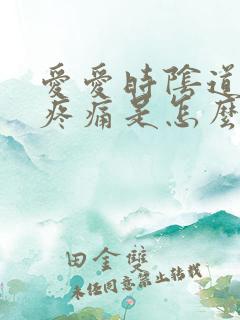 愛愛時陰道
疼痛是怎麼
田金雙
未經同意禁止轉載